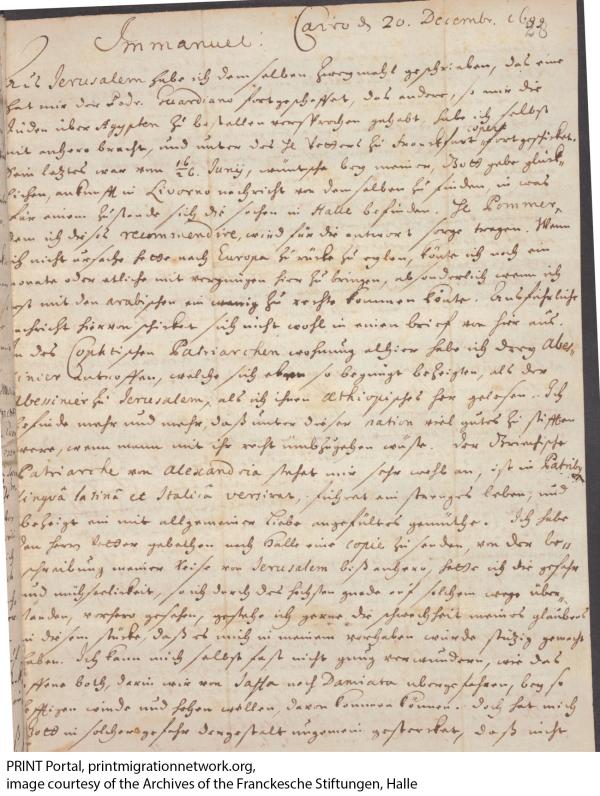 Immanuel. Cairo d. 20. Decembr. 1698
28
Aus Jerusalem habe ich demselben zweymahl geschrieben, das eine
hat mir der Padr. Guardiano fortgeschaffet, das andere, so mir die
Juden über Ägypten zu bestellen versprochen gehabt, habe ich selbst
mit anhero bracht, und unter des H. Vetters zu Franckfart copert fortgeschicket.
Sein letztes war vom 16/26. Junij, wünsche bey meiner, Gott gebe glück-
lichen, ankunfft in Livorno nachricht von demselben zu finden, in was
für einem zustande sich die sachen in Halle befinden. H. Pommer,
dem ich dieses recommendire, wird für die antwort sorge tragen. Wenn
ich nicht ursache hette nach Europa zu rücke zu eylen, könte ich noch ein
monate oder etliche mit vergnügen hier zu bringen, absonderlich wenn ich
erst mit den arabischen ein wenig zu rechte kommen könte. Ausführliche
nachricht hiervon schicket sich nicht wohl in einen brief von hier aus.
In des Cophtischen Patriarchen wohnung alhier habe ich drey Abes-
sinier antroffen, welche sich eben so begnügt bezeigten, als der
Abessinier zu Jerusalem, als ich ihnen æthiopisches her gelesen. Ich
befinde mehr und mehr, daß unter dieser nation viel gutes zu stifften
were, wenn mann mit ihr recht umbzugehen wüste. Der Grichische
Patriarche von Alexandria stehet mir sehr wohl an, ist in Patribus
linguâ latinâ et Italicâ versirat, führet ein strenges leben, und
bezeigt ein mit allgemeiner liebe angefültes gemüthe. Ich habe
den Herrn Vetter gebethen nach Halle eine copie zu senden, von der be-
schreibung meiner reise von Jerusalem biß anhero, hette ich die gefahr
und mühseelickeit, so ich durch des höchsten gnade auf solchem wege über-
standen, vorhero gesehen, gestehe ich gerne, die schwachheit meines glaubens
in diesem stücke, daß es mich in meinem vorhaben würde stützig gemacht
haben. Ich kann mich selbst fast nicht gnug verwundern, wie das
offene both, darin wir von Jaffa nach Damiata übergefahren, bey so
hefftigen winde und hohen wellen, davon kommen können. Doch hat mich
Gott in solcher gefahr dergestalt ungemein gestercket, daß nicht
PRINT Portal, printmigrationnetwork.org,
image courtesy of the Archives of the Franckesche Stiftungen, Halle